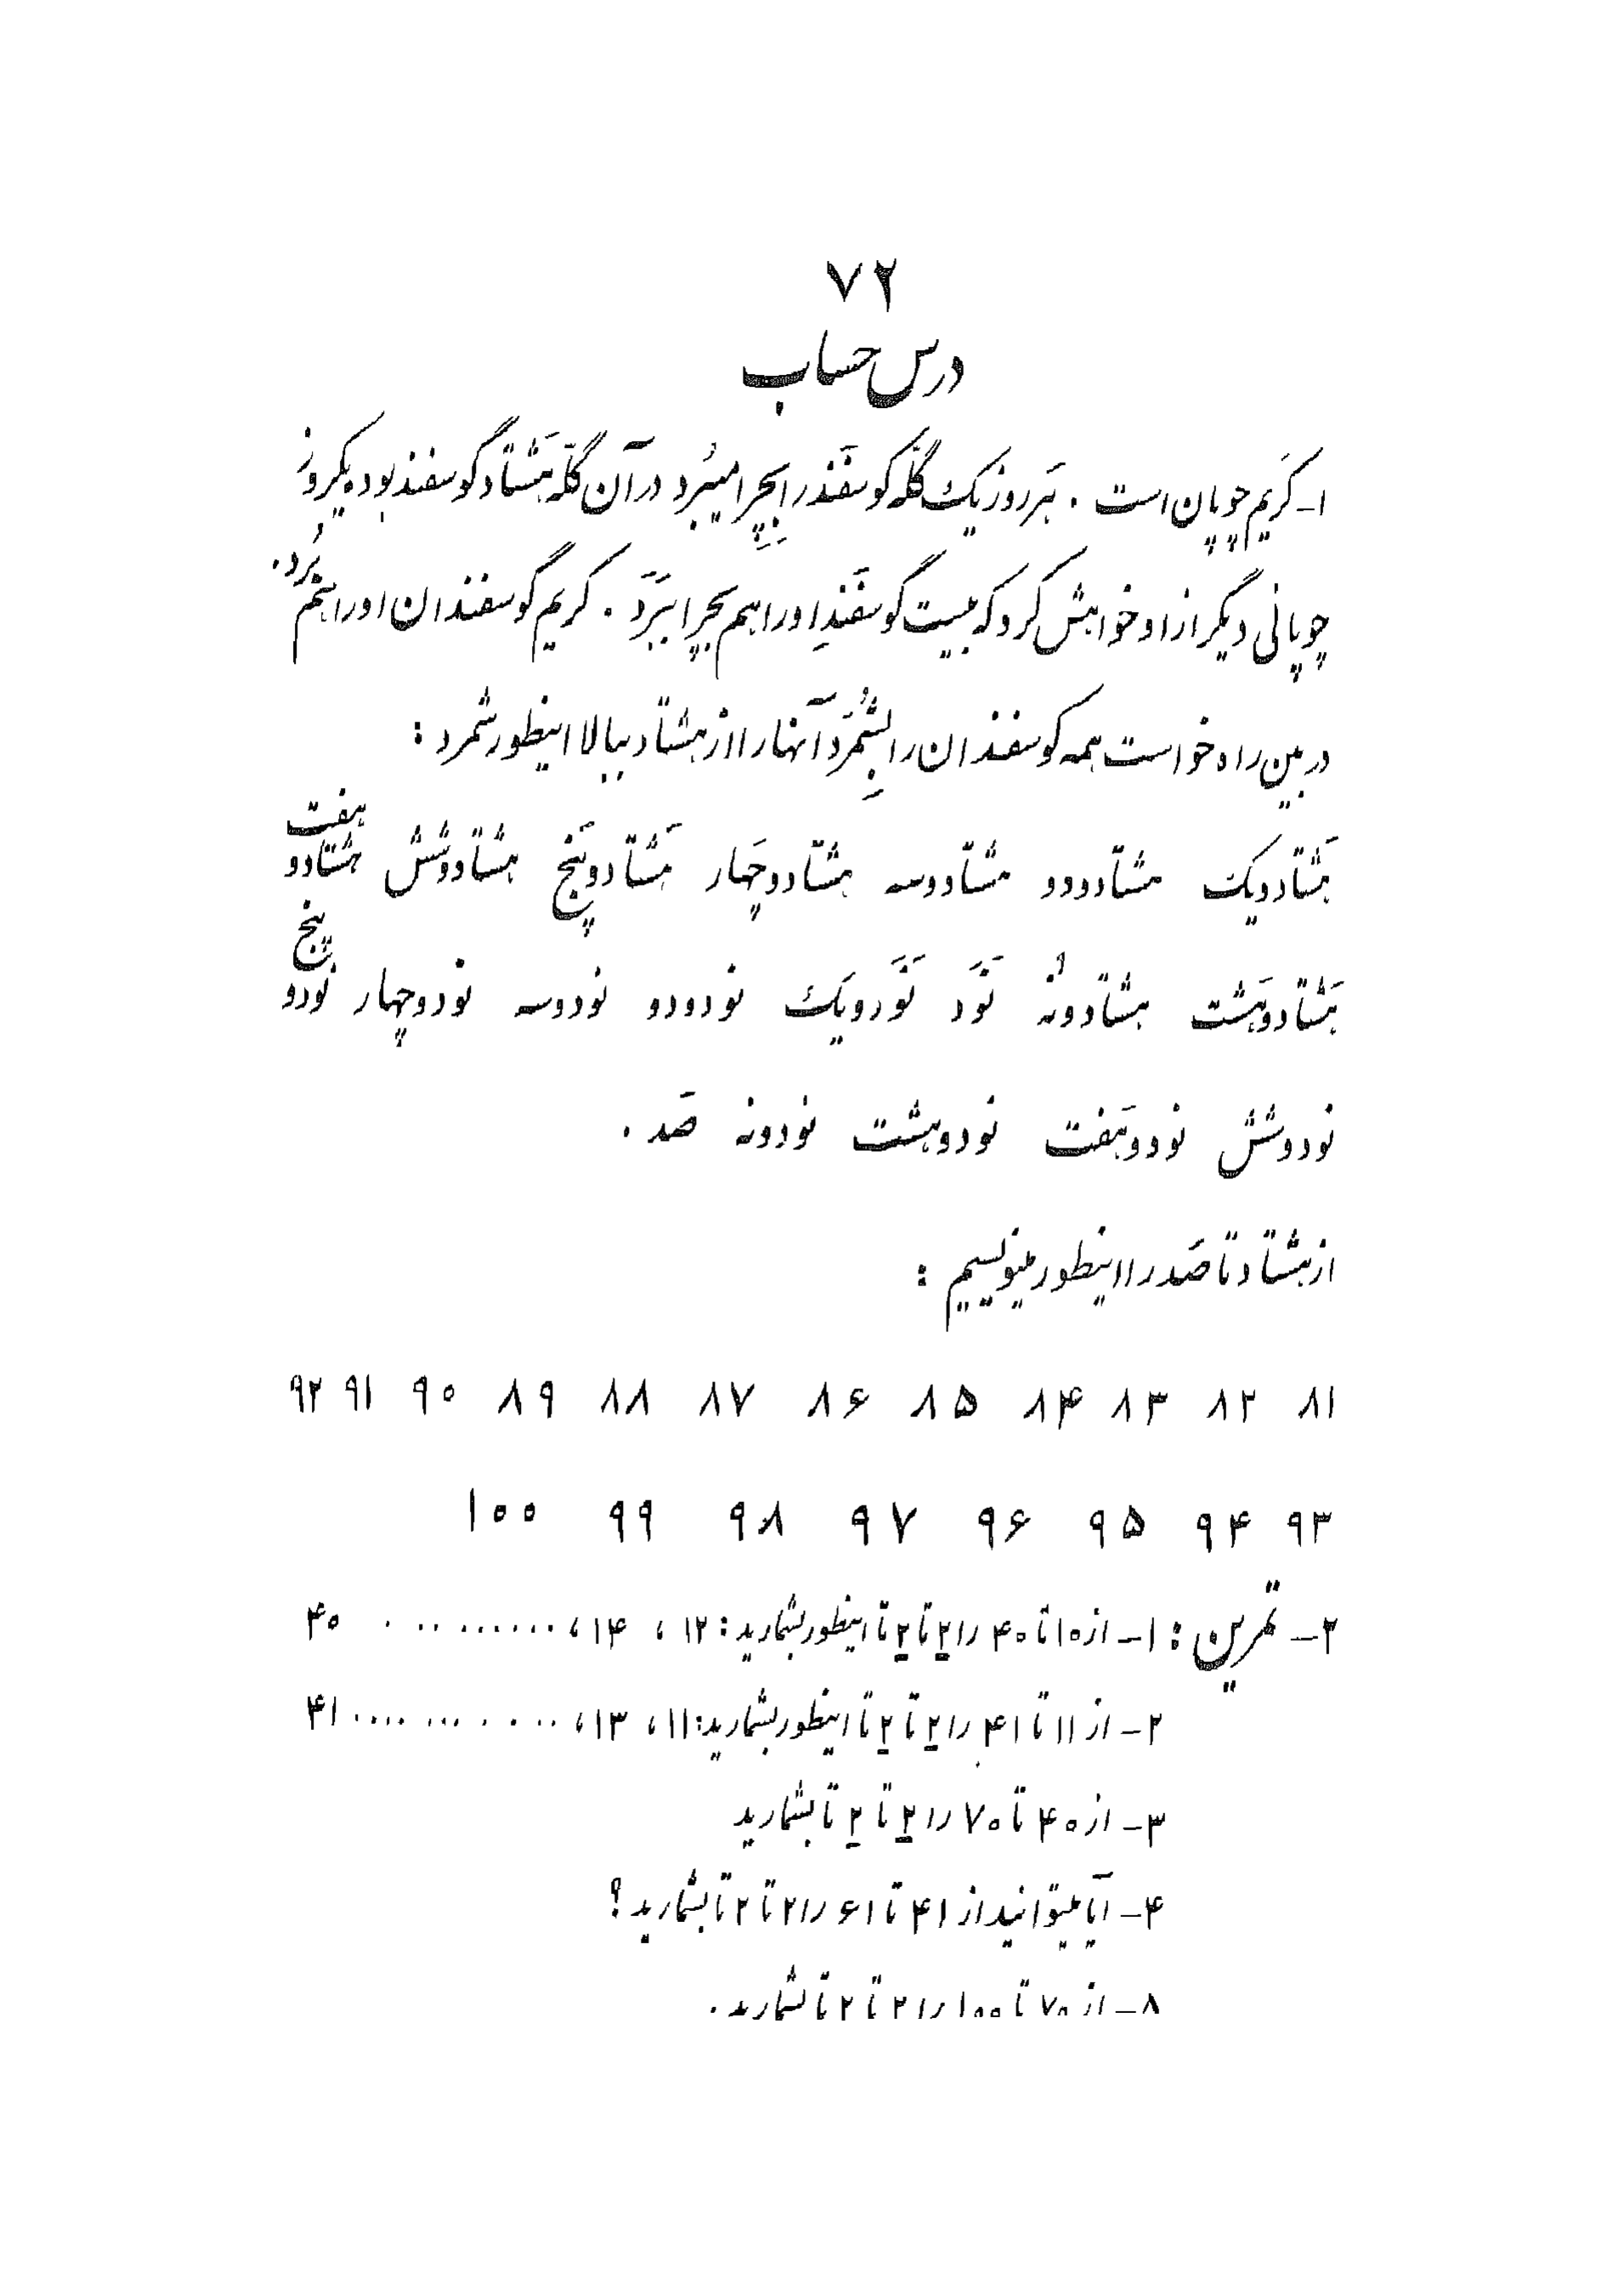 ۷۲
درس حساب
۱- کَریم چوپان است . هَر روز یک گَلّه گوسفَند را بِچِرا میبُرد در آن گَلّه هَشتاد گوسفند بود یکروز
چوپانی دیگر از او خواهش کرد که بیست گوسفَندِ او را هم بچرا ببَرَد . کریم گوسفندان او را هم بُرد.
در بین راه خواست همه گوسفندان را بِشُمُرَد آنها را از هشتاد ببالا اینطور شمرد :
هَشتاد و یک هشتاد و دو هشتاد و سه هشتاد و چَهار هَشتاد و پَنج هشتاد و شش هشتاد و هفت
هَشتاد و هَشت هشتاد و نُه نَوَد نَوَد و یک نود و دو نود و سه نود و چهار نود و پنج
نود و شش نود و هَفت نود و هشت نود و نه صَد .
از هشتاد تا صَد را اینطور مینویسیم :
۸۱ ۸۲ ۸۳ ۸۴ ۸۵ ۸۶ ۸۷ ۸۸ ۸۹ ۹۰ ۹۱ ۹۲
۹۳ ۹۴ ۹۵ ۹۶ ۹۷ ۹۸ ۹۹ ۱۰۰
۲- تمرین : ۱- از ۱۰ تا ۴۰ را ۲ تا ۲ تا اینطور بشمارید : ۱۲ ، ۱۴ ، ............ ۴۰
۲- از ۱۱ تا ۴۱ را ۲ تا ۲ تا اینطور بشمارید: ۱۱ ، ۱۳ ، ............ ۴۱
۳- از ۴۰ تا ۷۰ را ۲ تا ۲ تا بشمارید
۴- آیا میتوانید از ۴۱ تا ۶۱ را ۲ تا ۲ تا بشمارید ؟
۸- از ۷۰ تا ۱۰۰ را ۲ تا ۲ تا بشمارید .